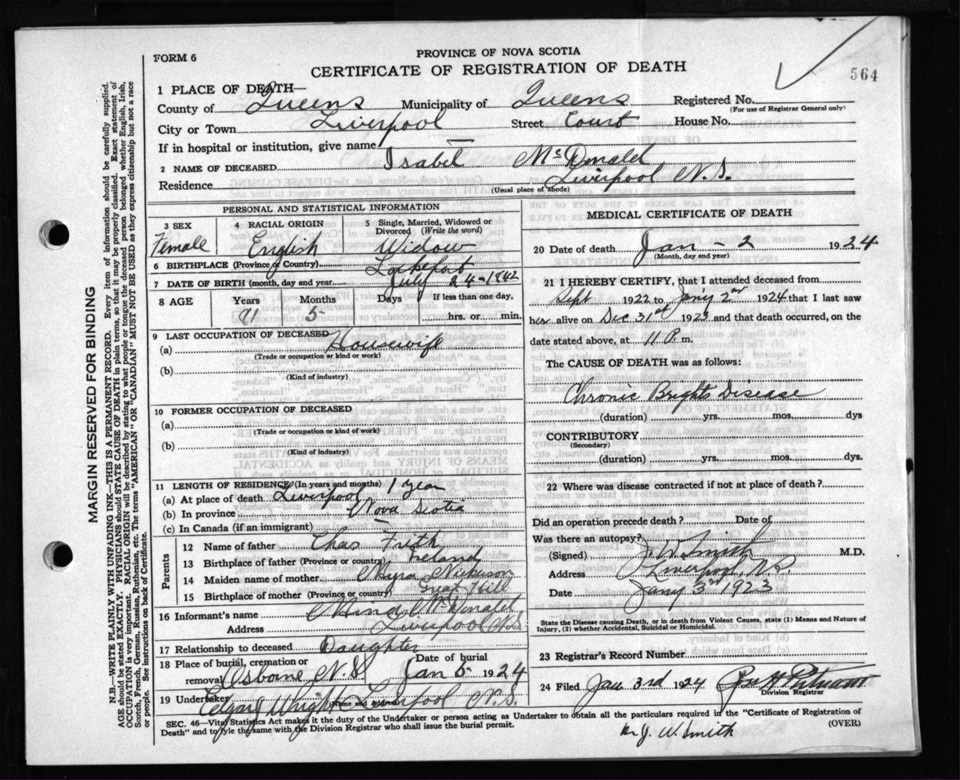 564
PROVINCE OF NOVA SCOTIA
FORM 6
CERTIFICATE OF REGISTRATION OF DEATH
1 PLACE OF DEATH—
County of Queens Municipality of Queens Registered No.
(For use of Registrar General only)
City or Town Liverpool Street Court House No.
If in hospital or institution, give name —
2 NAME OF DECEASED Isabel McDonald
Residence Liverpool N.S.
(Usual place of abode)
PERSONAL AND STATISTICAL INFORMATION
3 SEX 4 RACIAL ORIGIN 5 Single, Married, Widowed or Divorced (Write the word)
Female English Widow
6 BIRTHPLACE (Province or Country) Lockeport
7 DATE OF BIRTH (month, day and year) July 24-1842
8 AGE Years Months Days If less than one day,
5 hrs. or min.
9 LAST OCCUPATION OF DECEASED
(a) Housewife
(Trade or occupation or kind or work)
(b)
(Kind of industry)
10 FORMER OCCUPATION OF DECEASED
(a)
(Trade or occupation or kind of work)
(b)
(Kind of industry)
11 LENGTH OF RESIDENCE (In years and months)
(a) At place of death Liverpool 1 year
(b) In province Nova Scotia
(c) In Canada (if an immigrant) —
Parents
12 Name of father Chas Frith
13 Birthplace of father (Province or country) Ireland
14 Maiden name of mother Nickerson
15 Birthplace of mother (Province or country) Hill
16 Informant's name McDonald
Address Liverpool N.S.
17 Relationship to deceased Daughter
18 Place of burial, cremation or removal Osborne N.S. Date of burial Jan 5 1924
19 Undertaker Wright Liverpool N.S.
(Name and address)
MEDICAL CERTIFICATE OF DEATH
20 Date of death Jan - 2 1924
(Month, day and year)
21 I HEREBY CERTIFY, that I attended deceased from
Sept 1922 to Jan'y 2nd 1924 that I last saw
her alive on Dec 31st 1923 and that death occurred, on the
date stated above, at 11 P. m.
The CAUSE OF DEATH was as follows:
Chronic Brights Disease
(duration) yrs. mos. dys
CONTRIBUTORY
(Secondary)
(duration) yrs. mos. dys.
22 Where was disease contracted if not at place of death?
Did an operation precede death? Date of
Was there an autopsy?
(Signed) J. W. Smith M.D.
Address Liverpool N.S.
Date Jany 3rd 1923
State the Disease causing Death, or in death from Violent Causes, state (1) Means and Nature of Injury, (2) whether Accidental, Suicidal or Homicidal.
23 Registrar's Record Number
24 Filed Jan 3rd 1924 Putnam
Division Registrar
SEC. 46—Vital Statistics Act makes it the duty of the Undertaker or person acting as Undertaker to obtain all the particulars required in the "Certificate of Registration of
Death" and to file the same with the Division Registrar who shall issue the burial permit. (OVER)
Dr J. W. Smith
MARGIN RESERVED FOR BINDING
N.B.—WRITE PLAINLY WITH UNFADING INK—THIS IS A PERMANENT RECORD. Every item of information should be carefully supplied.
AGE should be stated EXACTLY. PHYSICIANS should STATE CAUSE OF DEATH in plain terms, so that it may be properly classified. Exact statement of
OCCUPATION is very important. RACIAL ORIGIN will be described by stating to what people or tongue the deceased person belonged whether English, Irish,
Scotch, French, German, Russian, Ruthenian, etc. The terms "AMERICAN" OR "CANADIAN" MUST NOT BE USED as they express citizenship but not a race
or people. See instructions on back of Certificate.